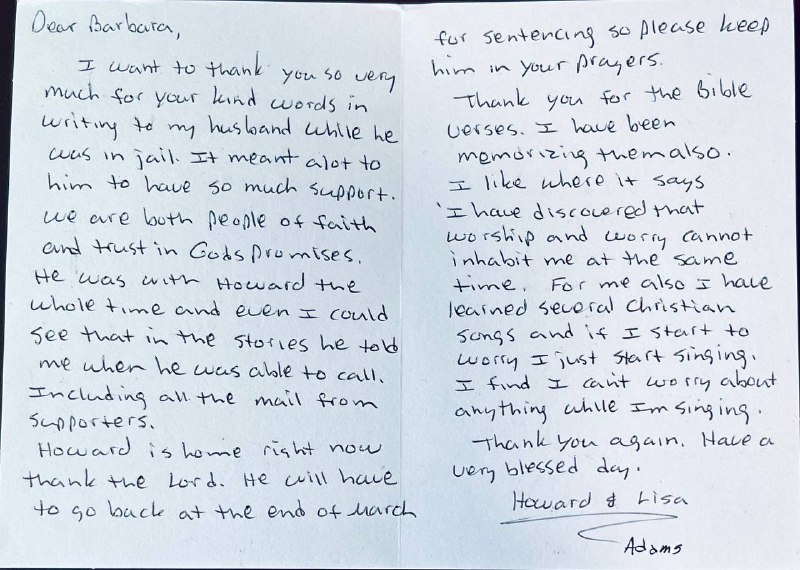 Dear Barbara,
I want to thank you so very
much for your kind words in
writing to my husband while he
was in jail. It meant alot to
him to have so much support.
We are both people of faith
and trust in Gods promises.
He was with Howard the
whole time and even I could
see that in the stories he told
me when he was able to call.
Including all the mail from
supporters.
Howard is home right now
thank the Lord. He will have
to go back at the end of March
for sentencing so please keep
him in your prayers.
Thank you for the Bible
verses. I have been
memorizing them also.
I like where it says
'I have discovered that
worship and worry cannot
inhabit me at the same
time. For me also I have
learned several Christian
songs and if I start to
worry I just start singing.
I find I can't worry about
anything while Im singing.
Thank you again. Have a
very blessed day.
Howard & Lisa
Adams